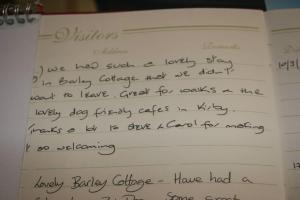 Visitors
Address
Remarks
D
) we had such a lovely stay
in Barley Cottage that we didn't
want to leave. Great for walks & the
lovely dog friendly cafes in Kirby.
Thanks a lot to Steve & Carol for making
it so welcoming
10/3/
Lovely Barley Cottage - Have had a
Some great